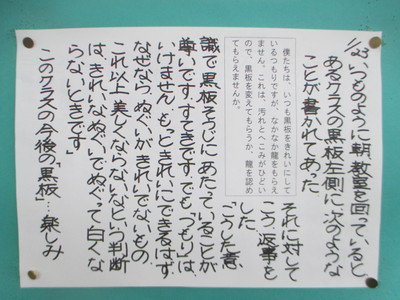 1/23いつものように朝、教室を回っていると、
あるクラスの黒板左側に次のような
ことが書かれてあった。
僕たちは、いつも黒板をきれいにして
いるつもりですが、なかなか龍をもらえ
ません。これは、汚れとへこみがひどい
ので、黒板を変えてもらうか、龍を認め
てもらえませんか。
それに対して
こう、返事を
した。
「こうした意
識で黒板そうじにあたっていることが
尊いです。すてきです。でも「つもり」は、
いけません。もっときれいにできるはず。
なぜなら、ぬぐいがきれいでないもの。
これ以上、美しくならないなという判断
は、きれいなぬぐいでぬぐって白くな
らないときです」
このクラスの今後の「黒板」…楽しみ